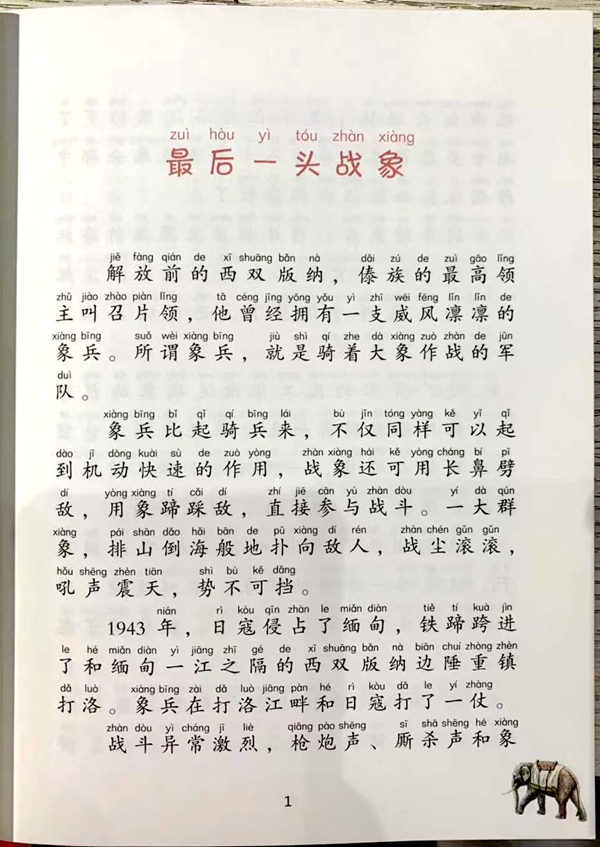 zuì hòu yì tóu zhàn xiàng
最后一头战象
jiě fàng qián de xī shuāng bǎn nà dǎi zú de zuì gāo lǐng
解放前的西双版纳，傣族的最高领
zhǔ jiào zhào piàn lǐng tā céng jīng yōng yǒu yì zhī wēi fēng lǐn lǐn de
主叫召片领，他曾经拥有一支威风凛凛的
xiàng bīng suǒ wèi xiàng bīng jiù shì qí zhe dà xiàng zuò zhàn de jūn
象兵。所谓象兵，就是骑着大象作战的军
duì
队。
xiàng bīng bǐ qǐ qí bīng lái bù jǐn tóng yàng kě yǐ qǐ
象兵比起骑兵来，不仅同样可以起
dào jī dòng kuài sù de zuò yòng zhàn xiàng hái kě yòng cháng bí pī
到机动快速的作用，战象还可用长鼻劈
dí yòng xiàng tí cǎi dí zhí jiē cān yù zhàn dòu yí dà qún
敌，用象蹄踩敌，直接参与战斗。一大群
xiàng pái shān dǎo hǎi bān de pū xiàng dí rén zhàn chén gǔn gǔn
象，排山倒海般地扑向敌人，战尘滚滚，
hǒu shēng zhèn tiān shì bù kě dǎng
吼声震天，势不可挡。
nián rì kòu qīn zhàn le miǎn diàn tiě tí kuà jìn
1943 年，日寇侵占了缅甸，铁蹄跨进
le hé miǎn diàn yì jiāng zhī gé de xī shuāng bǎn nà biān chuí zhòng zhèn
了和缅甸一江之隔的西双版纳边陲重镇
dǎ luò xiàng bīng zài dǎ luò jiāng pàn hé rì kòu dǎ le yí zhàng
打洛。象兵在打洛江畔和日寇打了一仗。
zhàn dòu yì cháng jī liè qiāng pào shēng sī shā shēng hé xiàng
战斗异常激烈，枪炮声、厮杀声和象
1